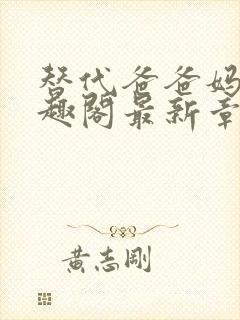 替代爸爸妈
趣阁最新章
黄志刚